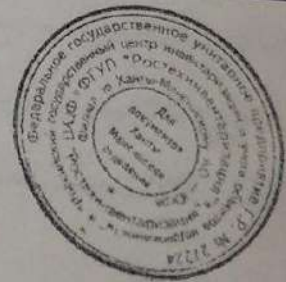 Федеральное государственное унитарное предприятие Г.Р. № 21224
государственный центр инвентаризации и учета объектов недвижимости
ФГУП "Ростехинвентаризация"
Филиал по Ханты-Мансийскому АО - Югре
Для
документов
Ханты-
Мансийское
отделение